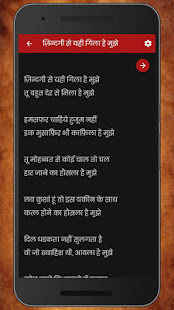 ज़िन्दगी से यही गिला है मुझे
ज़िन्दगी से यही गिला है मुझे
तू बहुत देर से मिला है मुझे
हमसफ़र चाहिये हुजूम नहीं
इक मुसाफ़िर भी काफ़िला है मुझे
तू मोहब्बत से कोई चाल तो चल
हार जाने का हौसला है मुझे
लब कुशां हूं तो इस यकीन के साथ
कत्ल होने का हौसला है मुझे
दिल धडकता नहीं सुलगता है
वो जो ख्वाहिश थी, आबला है मुझे